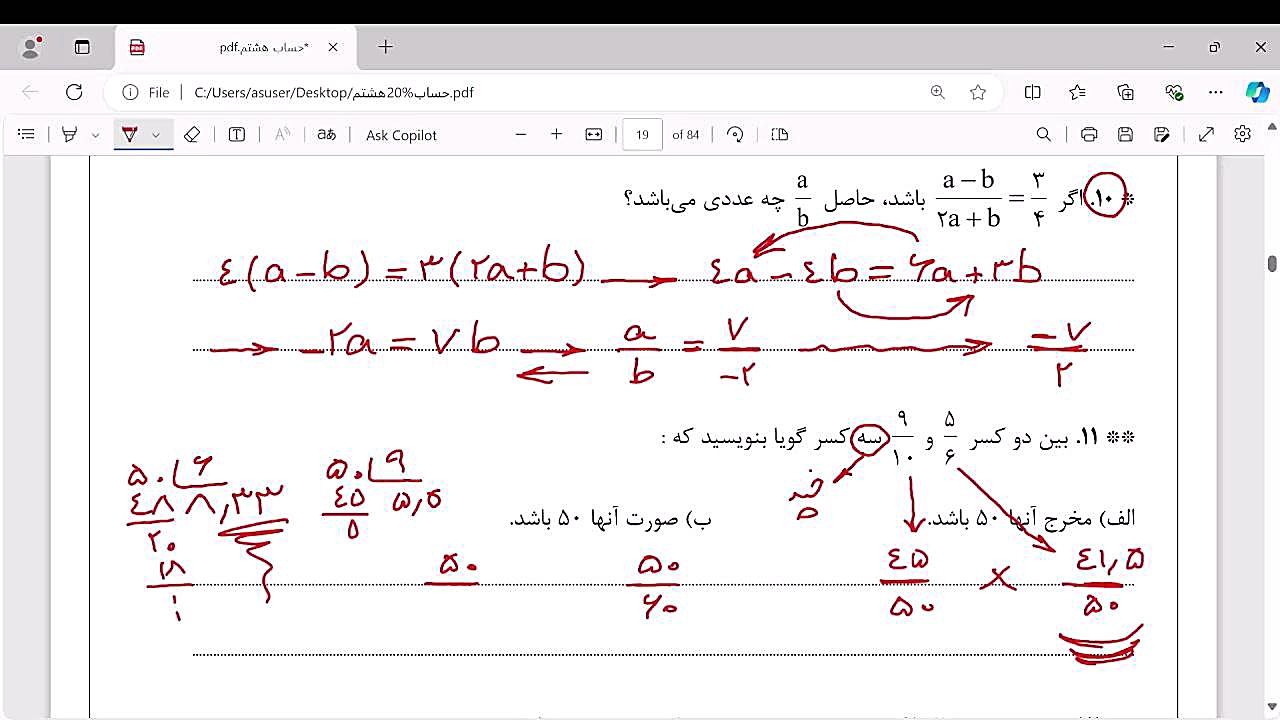 حساب هشتم.pdf*
File C:/Users/asuser/Desktop/حساب%20هشتم.pdf
Ask Copilot 19 of 84
* ۱۰. اگر (a − b)/(۲a + b) = ۳/۴ باشد، حاصل a/b چه عددی می‌باشد؟
٤(a − b) = ۳(۲a + b) → ٤a − ٤b = ۶a + ۳b
→ −۲a = ۷b → a/b = ۷/−۲ → −۷/۲
** ۱۱. بین دو کسر ۵/۶ و ۹/۱۰ سه کسر گویا بنویسید که :
الف) مخرج آنها ۵۰ باشد. ب) صورت آنها ۵۰ باشد.
٤۱,۵/۵۰ × ٤۵/۵۰ ۵۰/۶۰ ۵۰
۵۰ ۹ ٤۵ ۵ ۵,۵
۵۰ ۶ ٤۸ ۸,۳۳ ۲۰ ۱۸